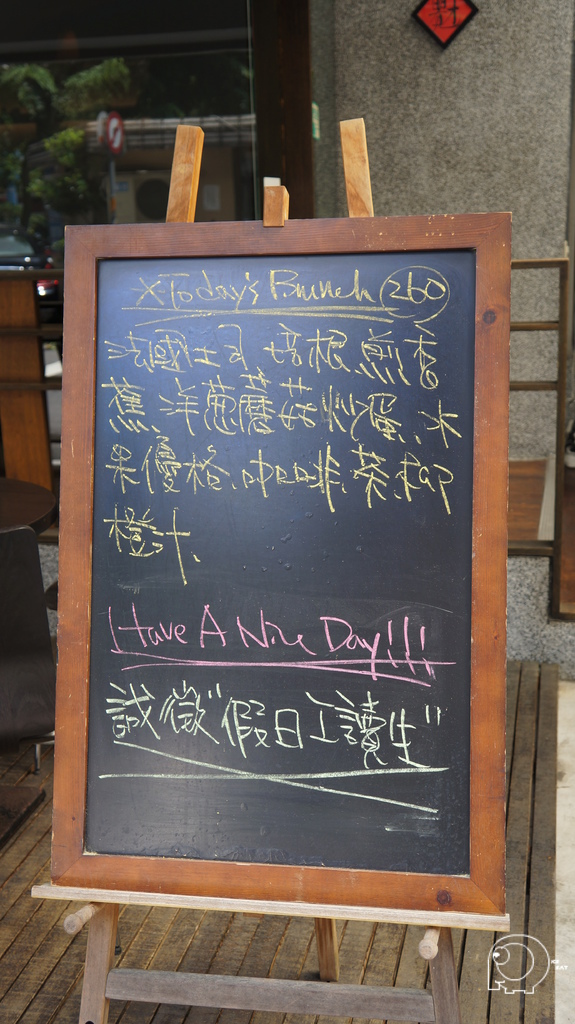 ※Today's Brunch 260
法國土司 培根煎香
蕉、洋蔥蘑菇炒蛋、水
果優格、咖啡、茶、柳
橙汁、
Have A Nice Day!!!
誠徵"假日工讀生"